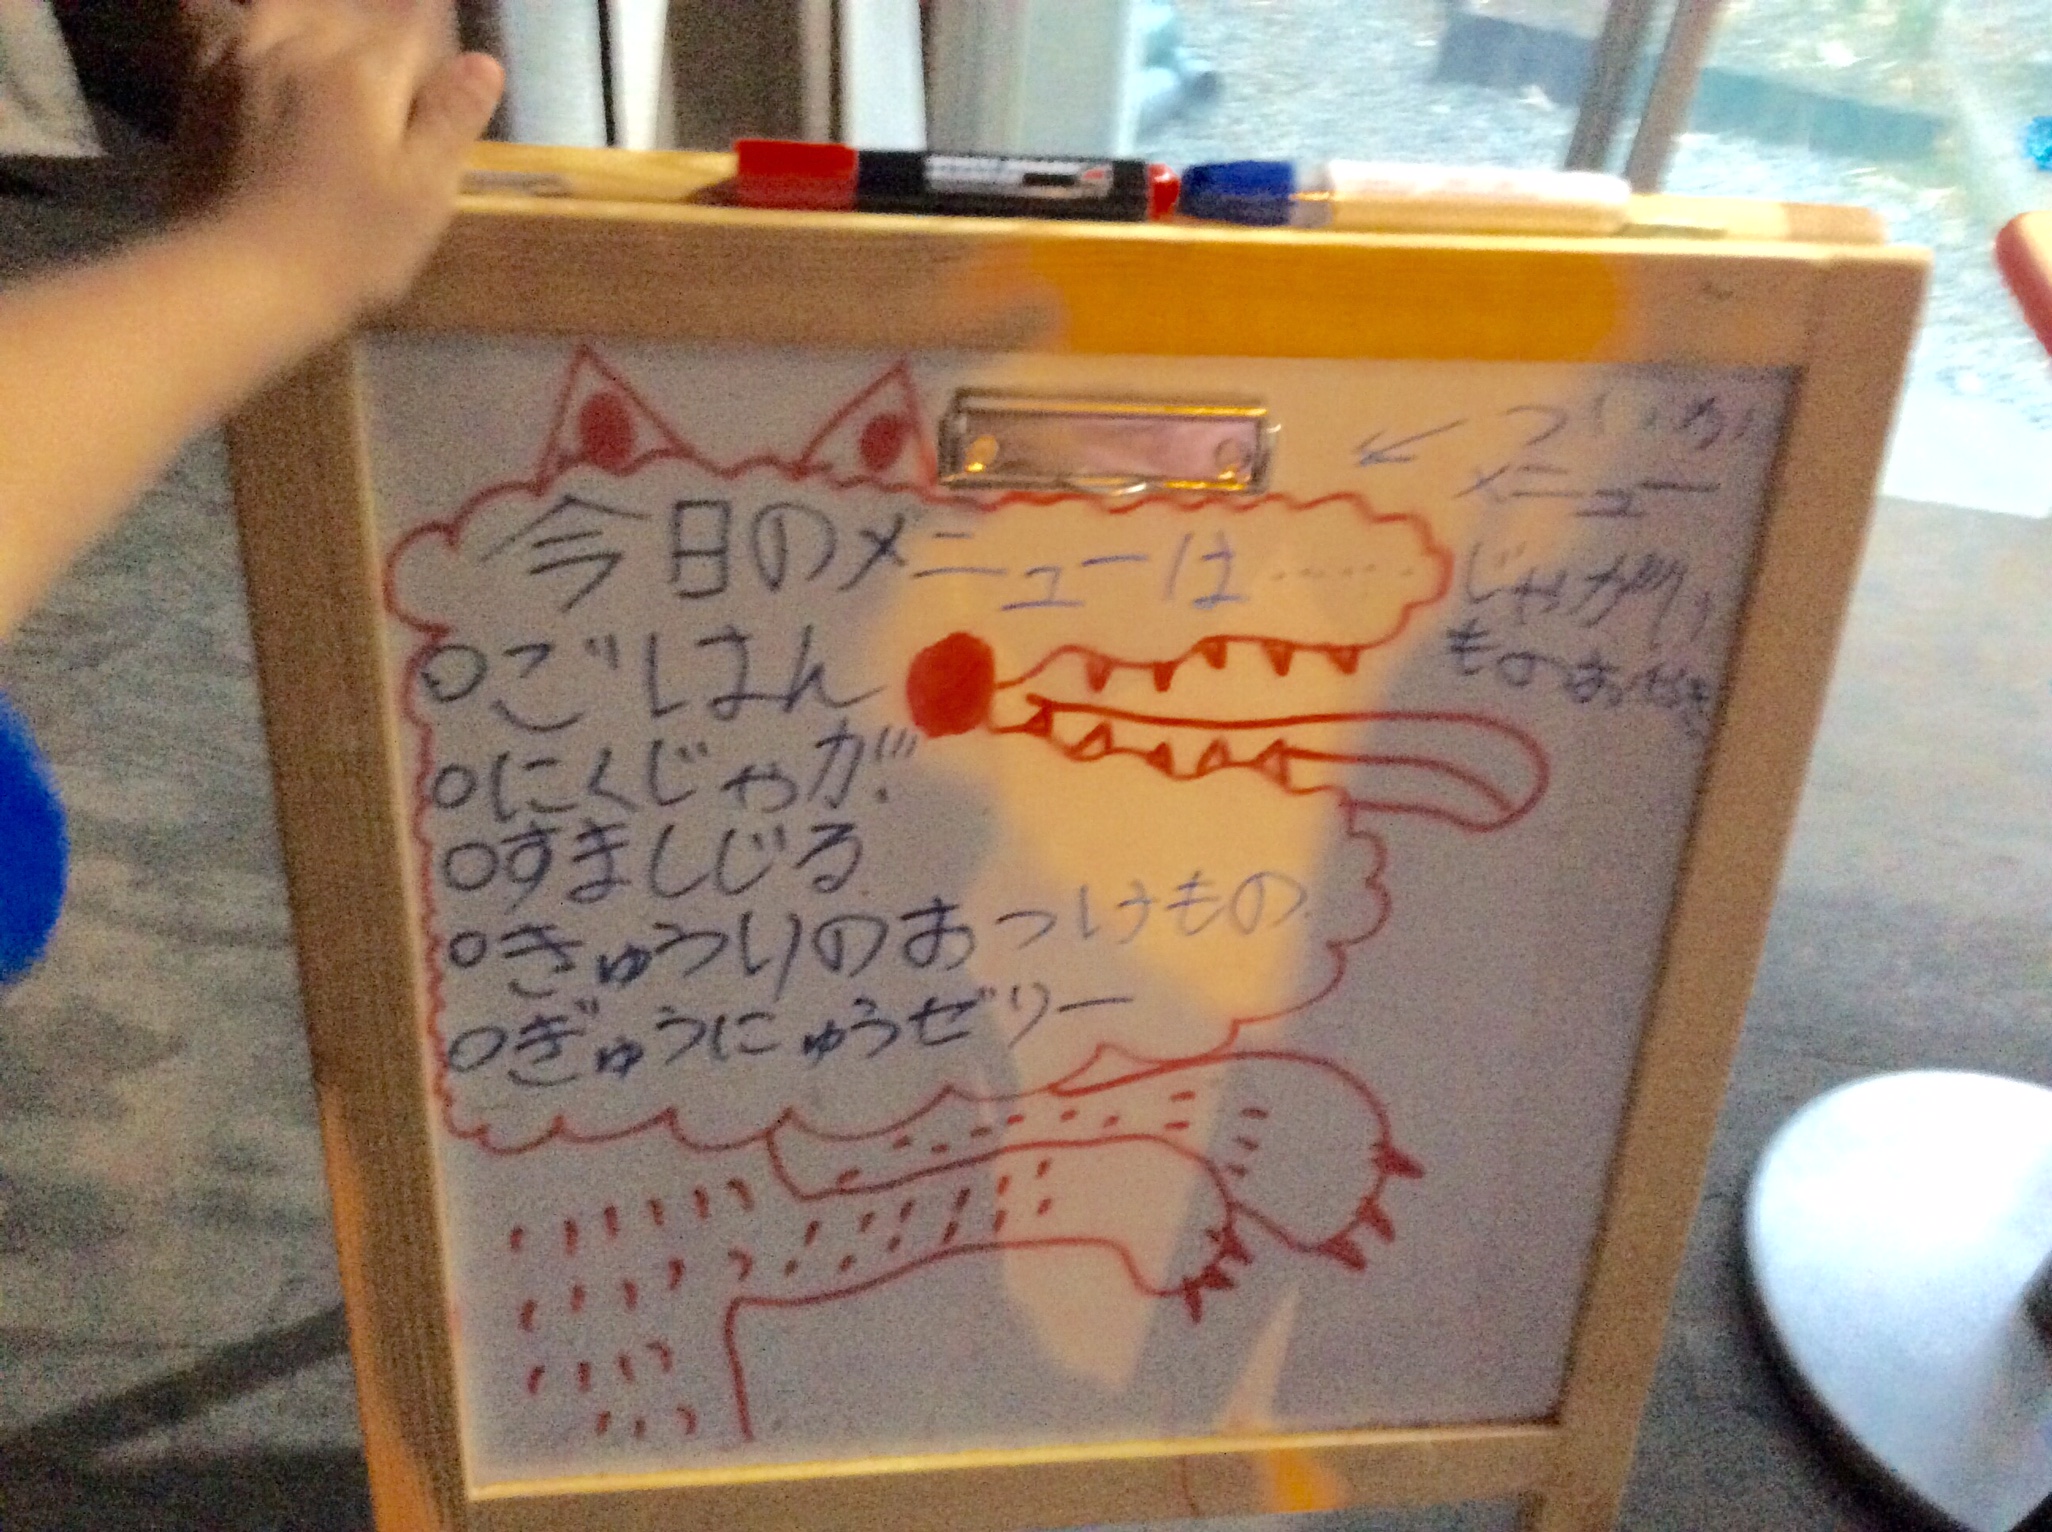 今日のメニューは……
○ごはん
○にくじゃが
○すましじる
○きゅうりのおつけもの
○ぎゅうにゅうゼリー
ついか
メニュー
じゃがいも